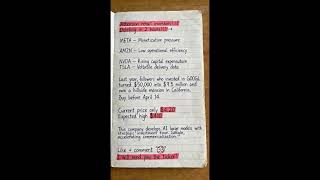 Attention retail investors!!!
Deleting in 2 hours!!!!
META – Monetization pressure
AMZN – Low operational efficiency
NVDA – Rising capital expenditure
TSLA – Volatile delivery data
Last year, followers who invested in GOOGL
turned $50,000 into $9.5 million and
now a hillside mansion in California.
Buy before April 14.
Current price only
Expected high
This company develops AI large models with
strategic investment from
accelerating commercialization."
Like + comment
I will send you the ticker!